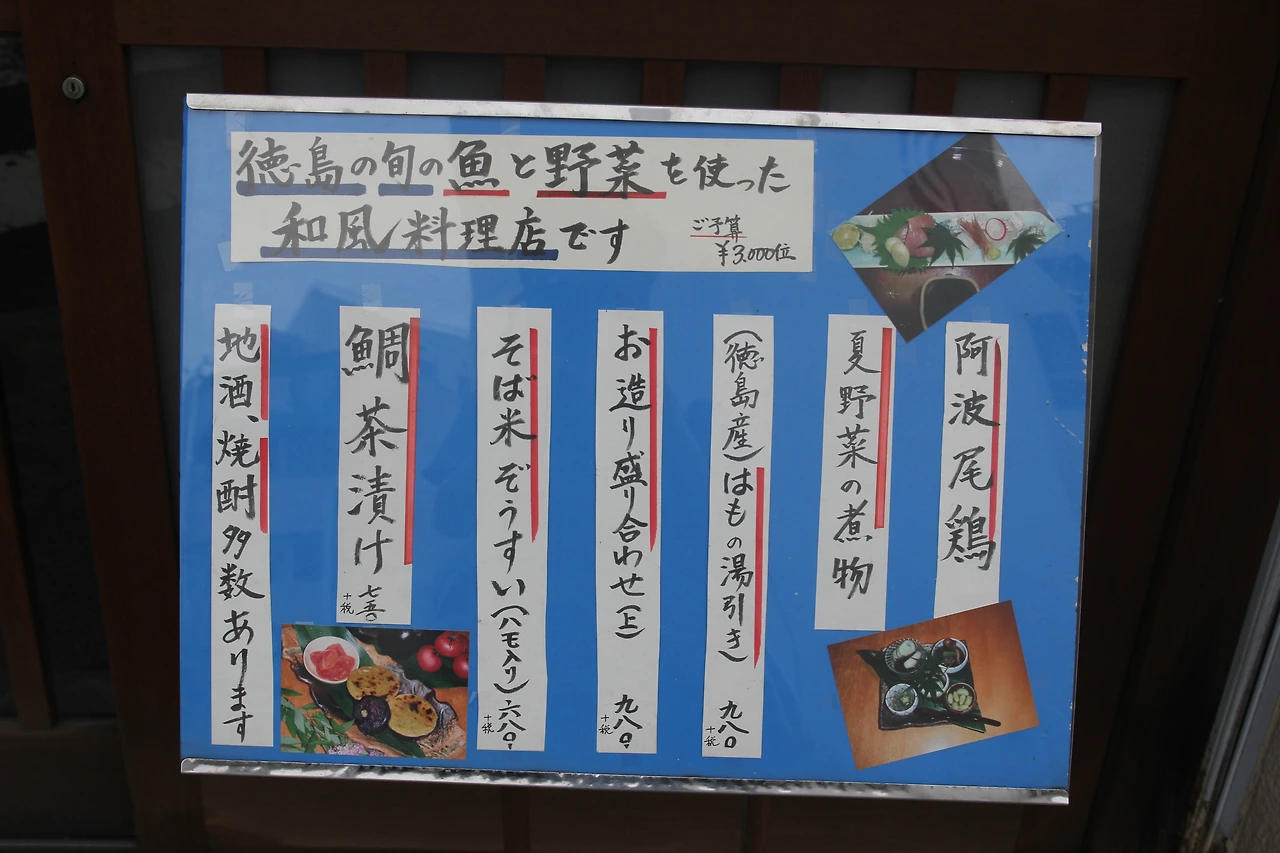 徳島の旬の魚と野菜を使った
和風料理店です
ご予算
¥3.000位
阿波尾鶏
夏野菜の煮物
(徳島産)はもの湯引き 九八〇
+税
お造り盛り合わせ(上) 九八〇
+税
そば米ぞうすい(ハモ入り) 六八〇
+税
鯛茶漬け 七五〇
+税
地酒、焼酎多数あります